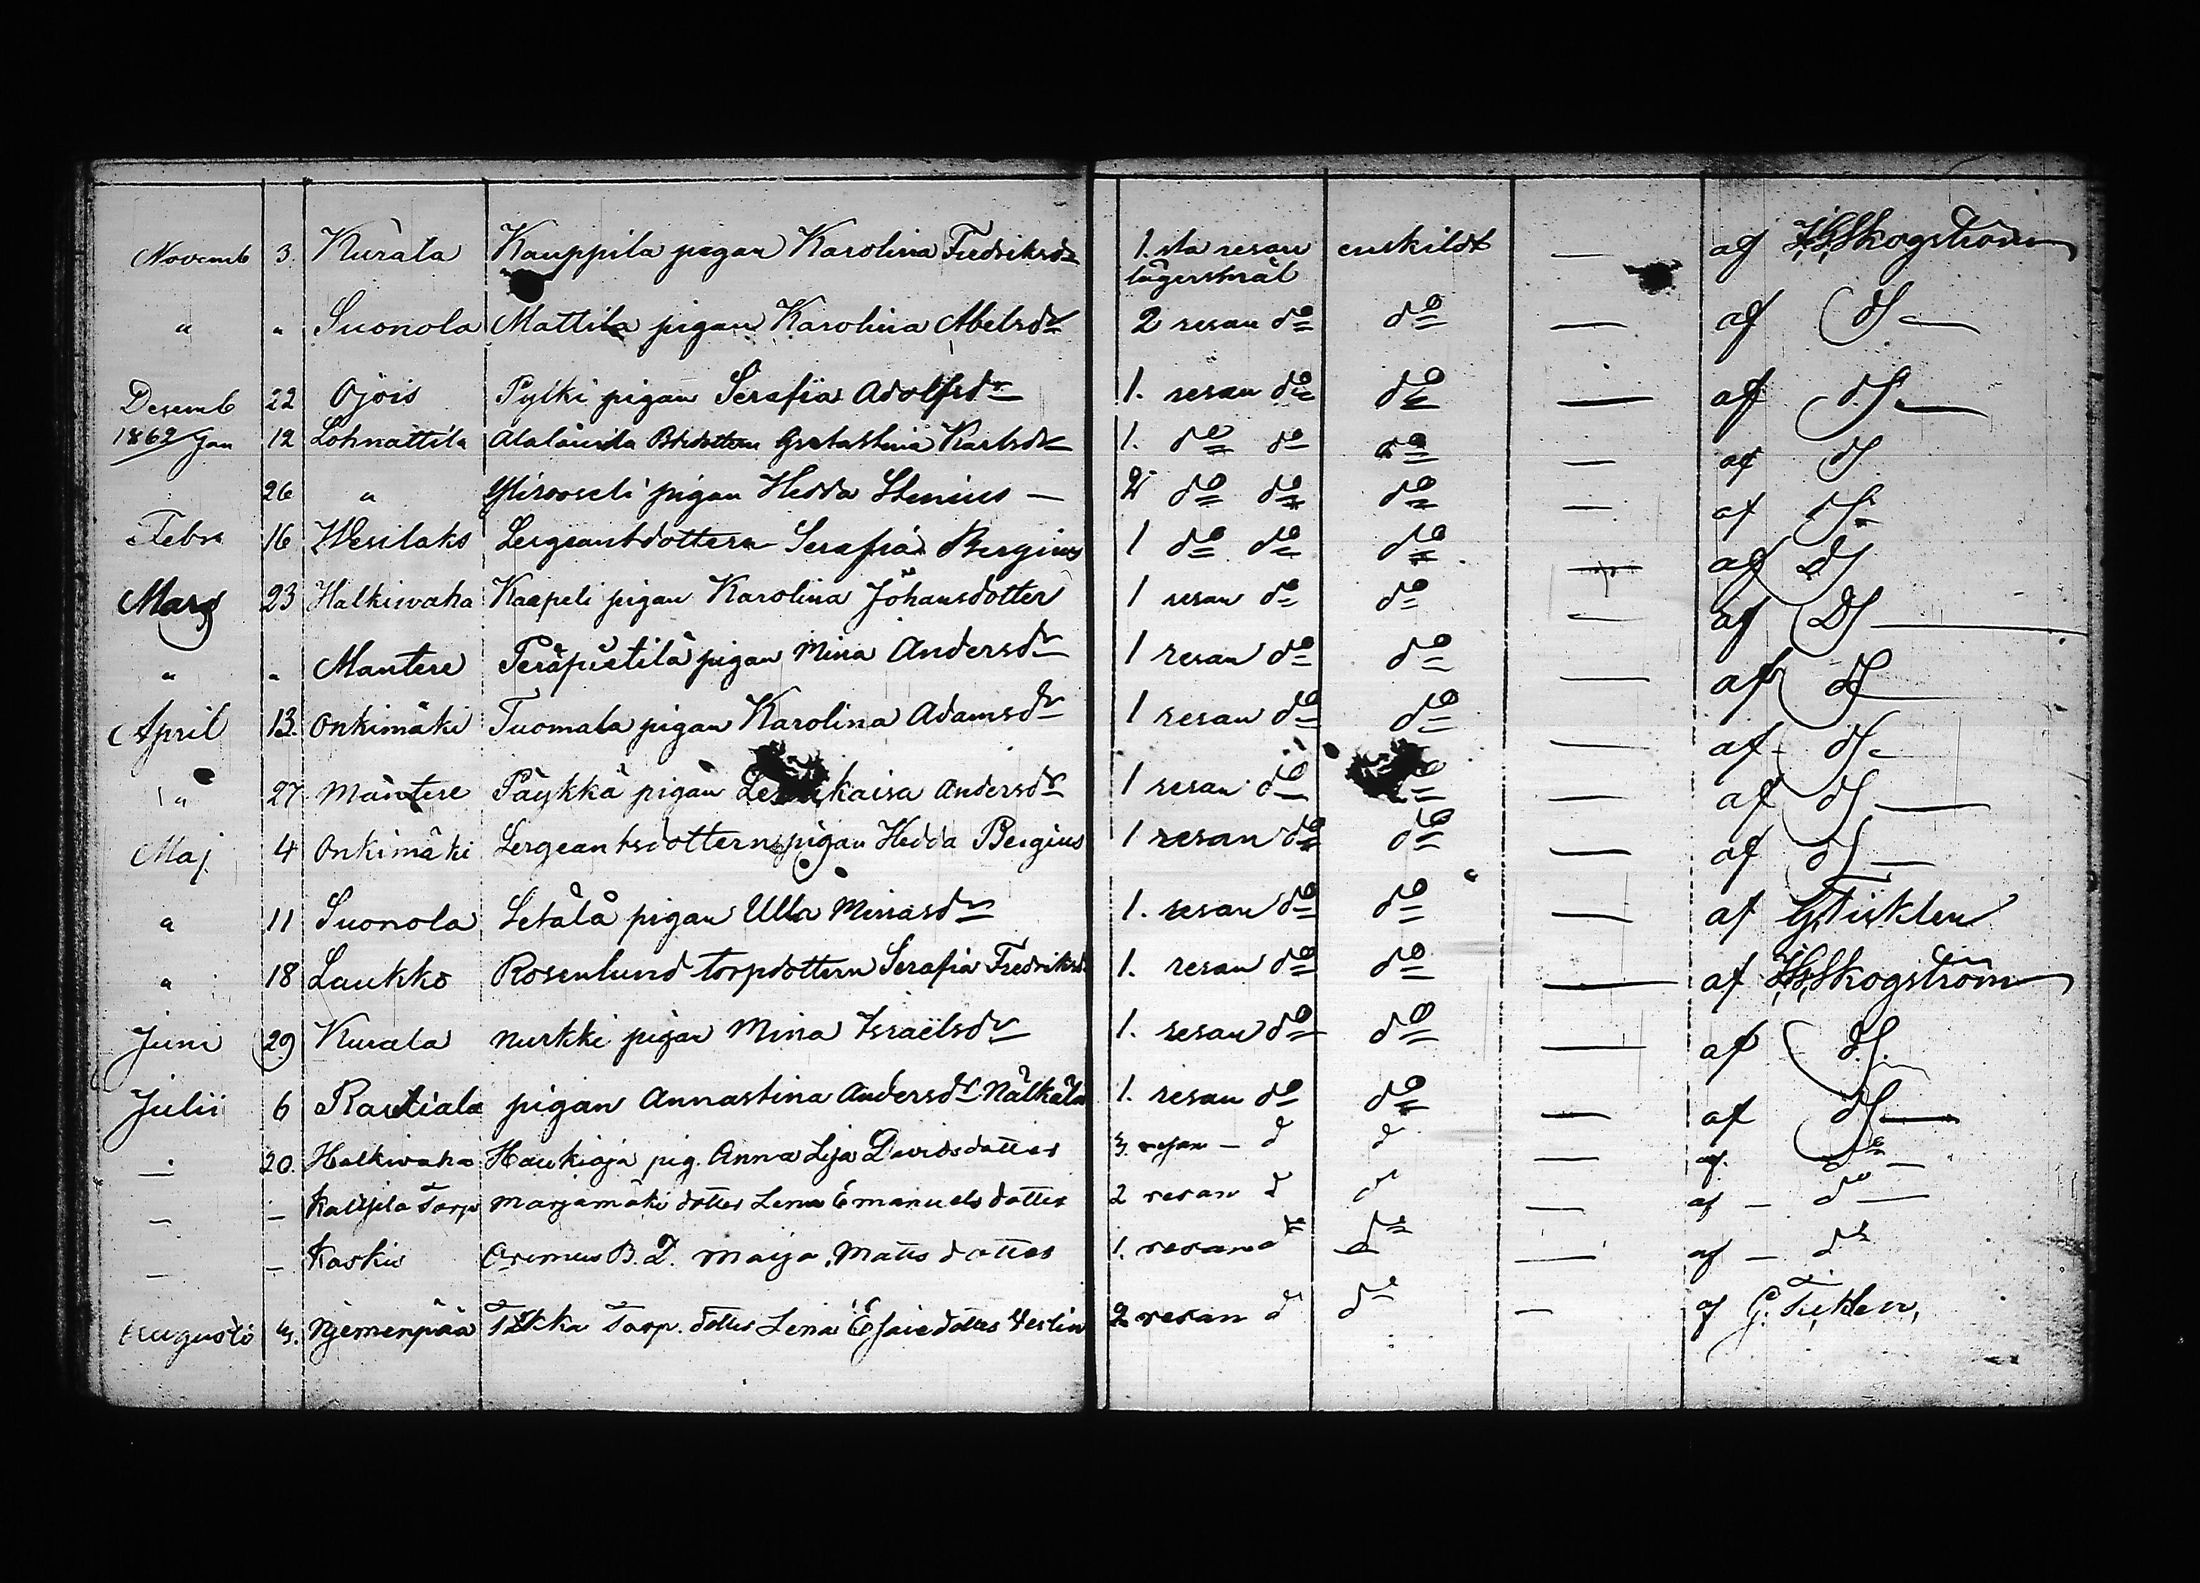 Novemb 3. Kurala Kauppila pigan Karolina Fredriksdr 1.sta resan enskildt — af Skogström
lägersmål
" " Suonola Mattila pigan Karolina Abelsdr 2 resan do do — af do
Desemb 22 Ojois Pylki pigan Serafia Adolfsdr 1. resan do do — af do
1862 Jan 12 Lohnattila Alalaurila Bdottern Gretastina Karlsdr 1. do do do — af do
26 " pigan Hedda Stenius — 2 do do do — af do
Febr 16 Wesilaks Sergeantdottern Serafia Bergius 1 do do do — af do
Mars 23 Halkiwaha Kaapeli pigan Karolina Johansdotter 1 resan do do — af do
" " Mantere Peräpietilä pigan Mina Andersdr 1 resan do do — af do
April 13. Onkimäki Tuomala pigan Karolina Adamsdr 1 resan do do — af do
" 27 Mantere Päykkä pigan Andersdr 1 resan do — af do
Maj 4 Onkimäki Sergeantsdottern pigan Hedda Bergius 1 resan do do — af do
" 11 Suonola Setälä pigan Ulla Minasdr 1. resan do do — af G. Ticklen
" 18 Laukko Rosenlund torpdottern Serafia Fredriksd 1. resan do do — af Skogström
Juni 29 Kurala Nurkki pigan Mina Israëlsdr 1. resan do do — af do
Julii 6 Rautiala pigan Annastina Andersdr Nälkälä 1. resan do do — af do
— 20. Halkiwaha Haukioja pig. Anna Lisa Davidsdotter 3. resan — d d — af do
— — Torp Marjamäki dotter Lena Emanuelsdotter 2 resan d do — af — do
— — Kaskis B. D. Maija Mattsdotter 1. resan do do — af — do
Augusti 3. Njemenpää Torp. dotter Lena 2 resan d do — af G. Ticklen,